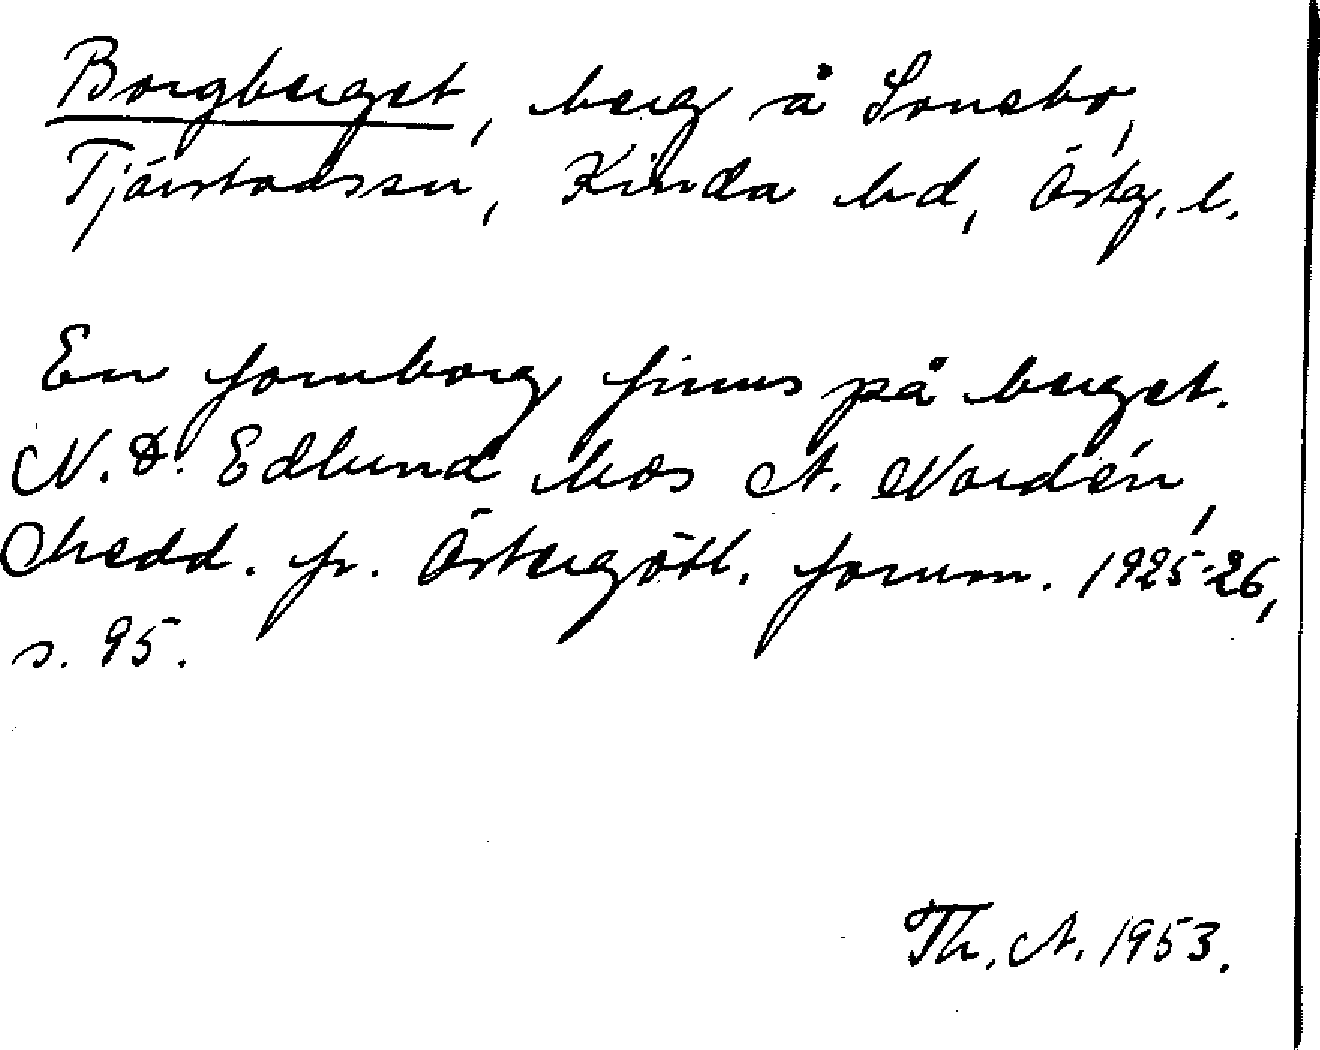 Borgberget, berg å Sonebo,
Tjärstadssn, Kinda hd, Östg. l.
En fornborg finns på berget.
N. D. Edlund hos A. Nordén,
Medd. fr. Östergötl. fornm. 1925-26,
s. 95.
Th. A. 1953.